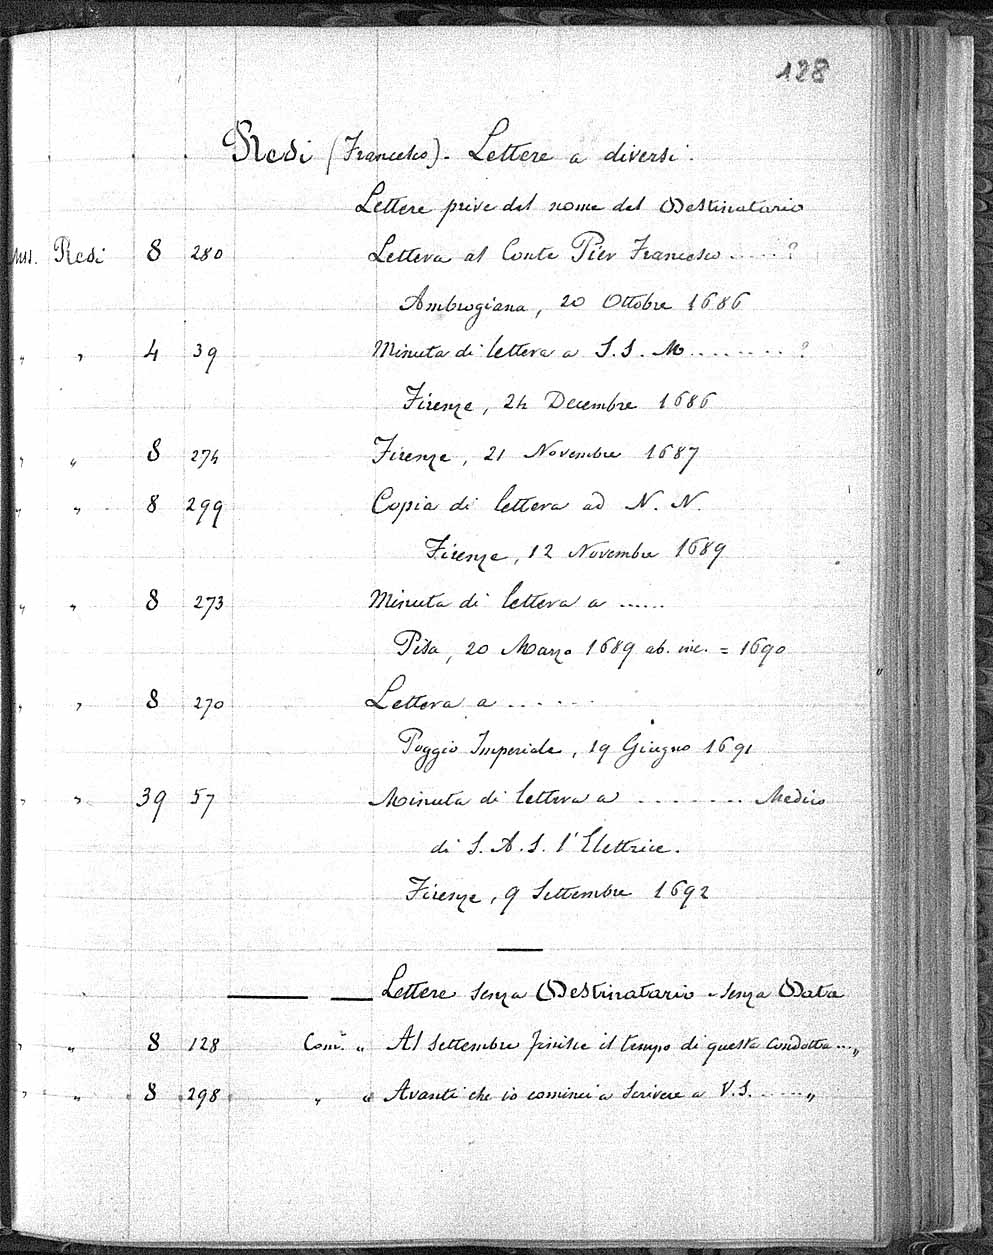 128
Redi (Francesco). Lettere a diversi.
Lettere prive del nome del Destinatario
Mss. Redi 8 280 Lettera al Conte Pier Francesco ..... ?
Ambrogiana, 20 Ottobre 1686
" " 4 39 Minuta di lettera a S. S. M ........ ?
Firenze, 24 Decembre 1686
" " 8 274 Firenze, 21 Novembre 1687
" " 8 299 Copia di lettera ad N. N.
Firenze, 12 Novembre 1689
" " 8 273 Minuta di lettera a ......
Pisa, 20 Marzo 1689 ab. inc. = 1690
" " 8 270 Lettera a ......
Poggio Imperiale, 19 Giugno 1691
" " 39 57 Minuta di lettera a ........ Medico
di S. A. S. l'Elettrice.
Firenze, 9 Settembre 1692
Lettere senza Destinatario e senza Data
" " 8 128 Com.ª " Al Settembre finisce il tempo di questa Condotta ... "
" " 8 298 " " Avanti che io cominci a Scrivere a V.S. ...... "